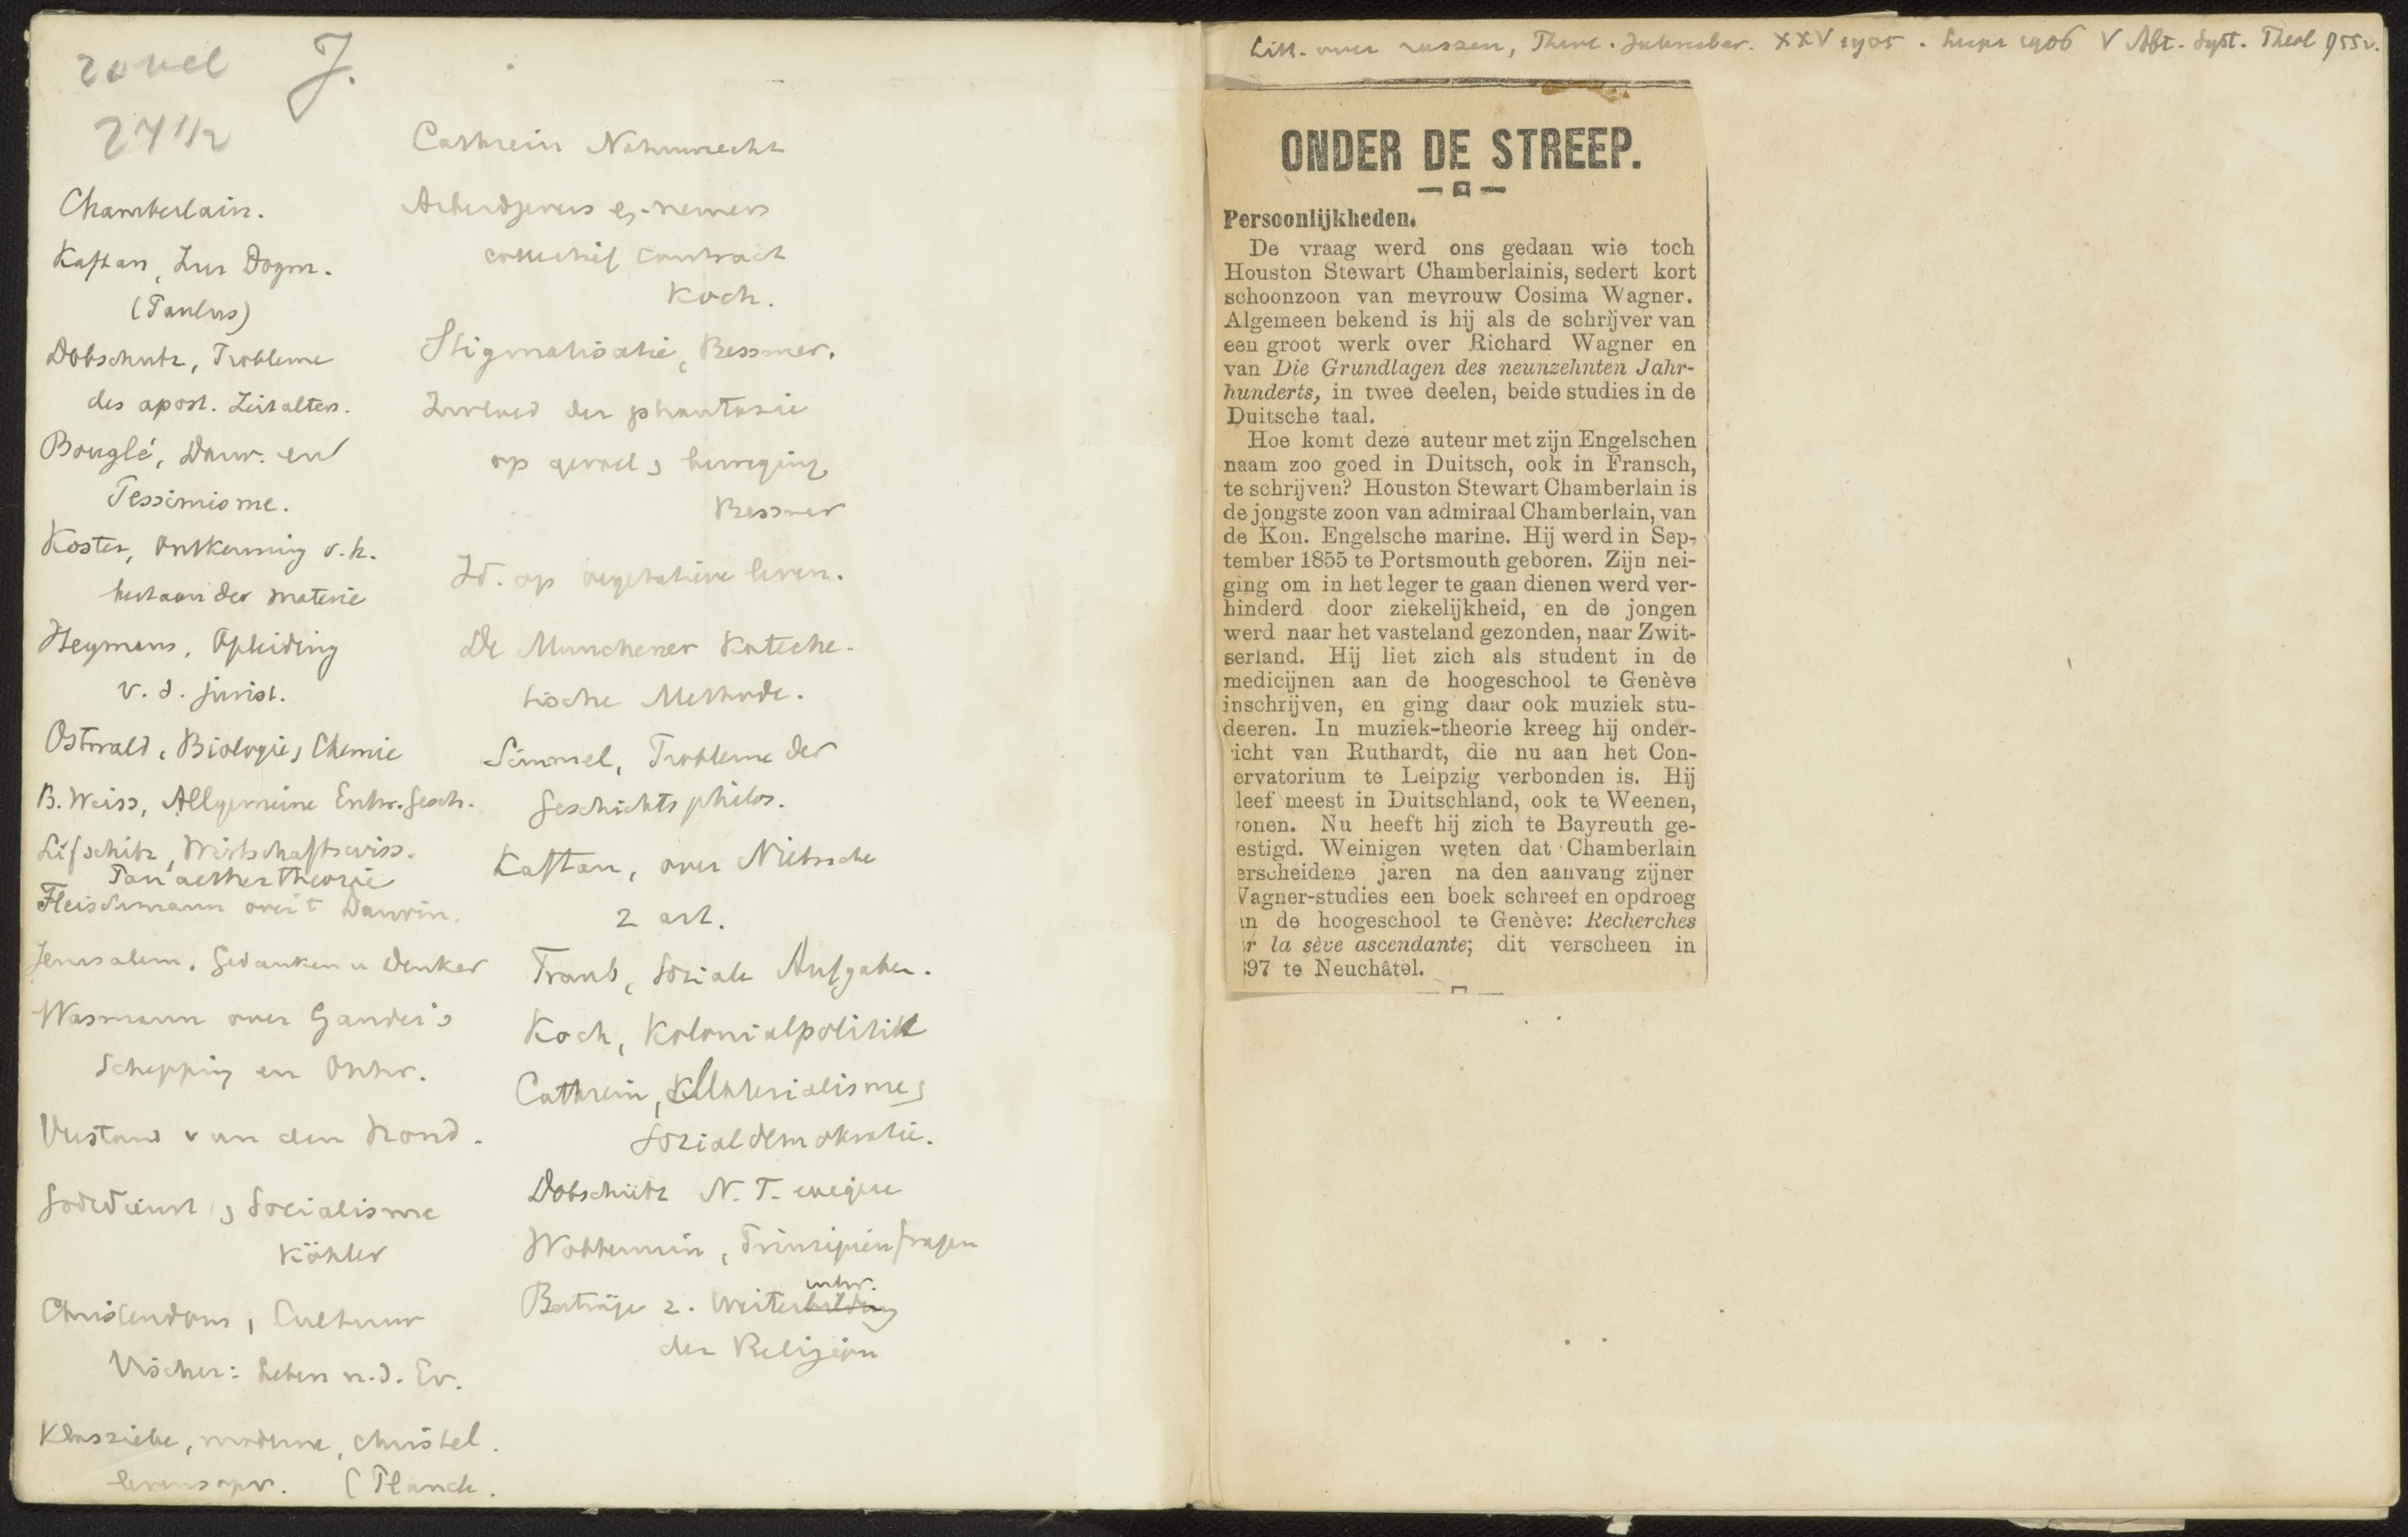 20 vel J.
27 1/2
Chamberlain.
Kaftan, Zur Dogm.
(Paulus)
Dobschutz, Probleme
des apost. Zeitalters.
Bouglé, Darw. en
Pessimisme.
Koster, Ontkenning v. h.
bestaan der materie
Heymans, Opleiding
v. d. jurist.
Ostwald, Biologie, Chemie
B. Weiss, Allgemeine Entw. gesch.
Lifschitz, Wirtschaftswiss.
Panaethertheorie
Fleischmann over 't Darwin.
Jerusalem, Gedanken u Denker
Wasmann over Gander's
Schepping en Ontw.
van den
Godsdienst, Socialisme
Köhler
Christendom, Cultuur
Vischer: Leben n. d. Ev.
Klassieke, moderne, christel.
levensopv. (Planck.
Cathrein Naturrecht
Arbeidgevers en -nemers
collectief contract
Koch.
Stigmatisatie, Bessmer.
Invloed der phantasie
op gevoel, beweging
Bessmer
Id. op vegetatieve leven.
De Munchener Kateche-
tische Methode.
Simmel, Probleme der
Geschichtsphilos.
Kaftan, over Nietzsche
2 art.
Traub, Soziale Aufgaben.
Koch, Kolonialpolitik
Cathrein, Materialisme,
Sozialdemokratie.
Dobschütz N. T. exegese
Wobbermin, Prinzipienfragen
entw.
Beiträge z. Weiterbildung
der Religion
Litt. over rassen, Theol. Jahresber. XXV 1905. Leipz 1906 V Abt. Syst. Theol 955v.
ONDER DE STREEP.
Persoonlijkheden.
De vraag werd ons gedaan wie toch
Houston Stewart Chamberlainis, sedert kort
schoonzoon van mevrouw Cosima Wagner.
Algemeen bekend is hij als de schrijver van
een groot werk over Richard Wagner en
van Die Grundlagen des neunzehnten Jahr-
hunderts, in twee deelen, beide studies in de
Duitsche taal.
Hoe komt deze auteur met zijn Engelschen
naam zoo goed in Duitsch, ook in Fransch,
te schrijven? Houston Stewart Chamberlain is
de jongste zoon van admiraal Chamberlain, van
de Kon. Engelsche marine. Hij werd in Sep-
tember 1855 te Portsmouth geboren. Zijn nei-
ging om in het leger te gaan dienen werd ver-
hinderd door ziekelijkheid, en de jongen
werd naar het vasteland gezonden, naar Zwit-
serland. Hij liet zich als student in de
medicijnen aan de hoogeschool te Genève
inschrijven, en ging daar ook muziek stu-
deeren. In muziek-theorie kreeg hij onder-
icht van Ruthardt, die nu aan het Con-
ervatorium te Leipzig verbonden is. Hij
leef meest in Duitschland, ook te Weenen,
onen. Nu heeft hij zich te Bayreuth ge-
estigd. Weinigen weten dat Chamberlain
erscheidene jaren na den aanvang zijner
Wagner-studies een boek schreef en opdroeg
an de hoogeschool te Genève: Recherches
r la sève ascendante; dit verscheen in
897 te Neuchâtel.